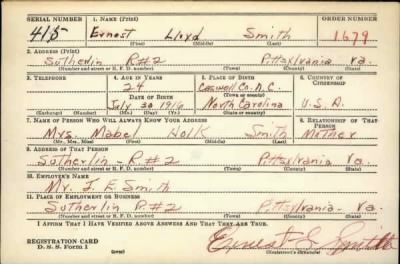 SERIAL NUMBER 1. NAME (Print) ORDER NUMBER
415 Ernest Lloyd Smith 1679
(First) (Middle) (Last)
2. ADDRESS (Print)
Sutherlin R#2 Pittsylvania Va.
(Number and street or R. F. D. number) (Town) (County) (State)
3. TELEPHONE 4. AGE IN YEARS 5. PLACE OF BIRTH 6. COUNTRY OF CITIZENSHIP
24 Caswell Co. N.C.
DATE OF BIRTH (Town or county)
July 20 1916 North Carolina U.S.A.
(Exchange) (Number) (Mo.) (Day) (Yr.) (State or country)
7. NAME OF PERSON WHO WILL ALWAYS KNOW YOUR ADDRESS 8. RELATIONSHIP OF THAT PERSON
Mrs. Mabel Smith Mother
(Mr., Mrs., Miss) (First) (Middle) (Last)
9. ADDRESS OF THAT PERSON
Sutherlin - R.#2 Pittsylvania Va.
(Number and street or R. F. D. number) (Town) (County) (State)
10. EMPLOYER'S NAME
Mr. J. E. Smith
11. PLACE OF EMPLOYMENT OR BUSINESS
Sutherlin R.#2 Pittsylvania - Va.
(Number and street or R. F. D. number) (Town) (County) (State)
I AFFIRM THAT I HAVE VERIFIED ABOVE ANSWERS AND THAT THEY ARE TRUE.
REGISTRATION CARD
D. S. S. Form 1 (over) Ernest L. Smith
(Registrant's signature)